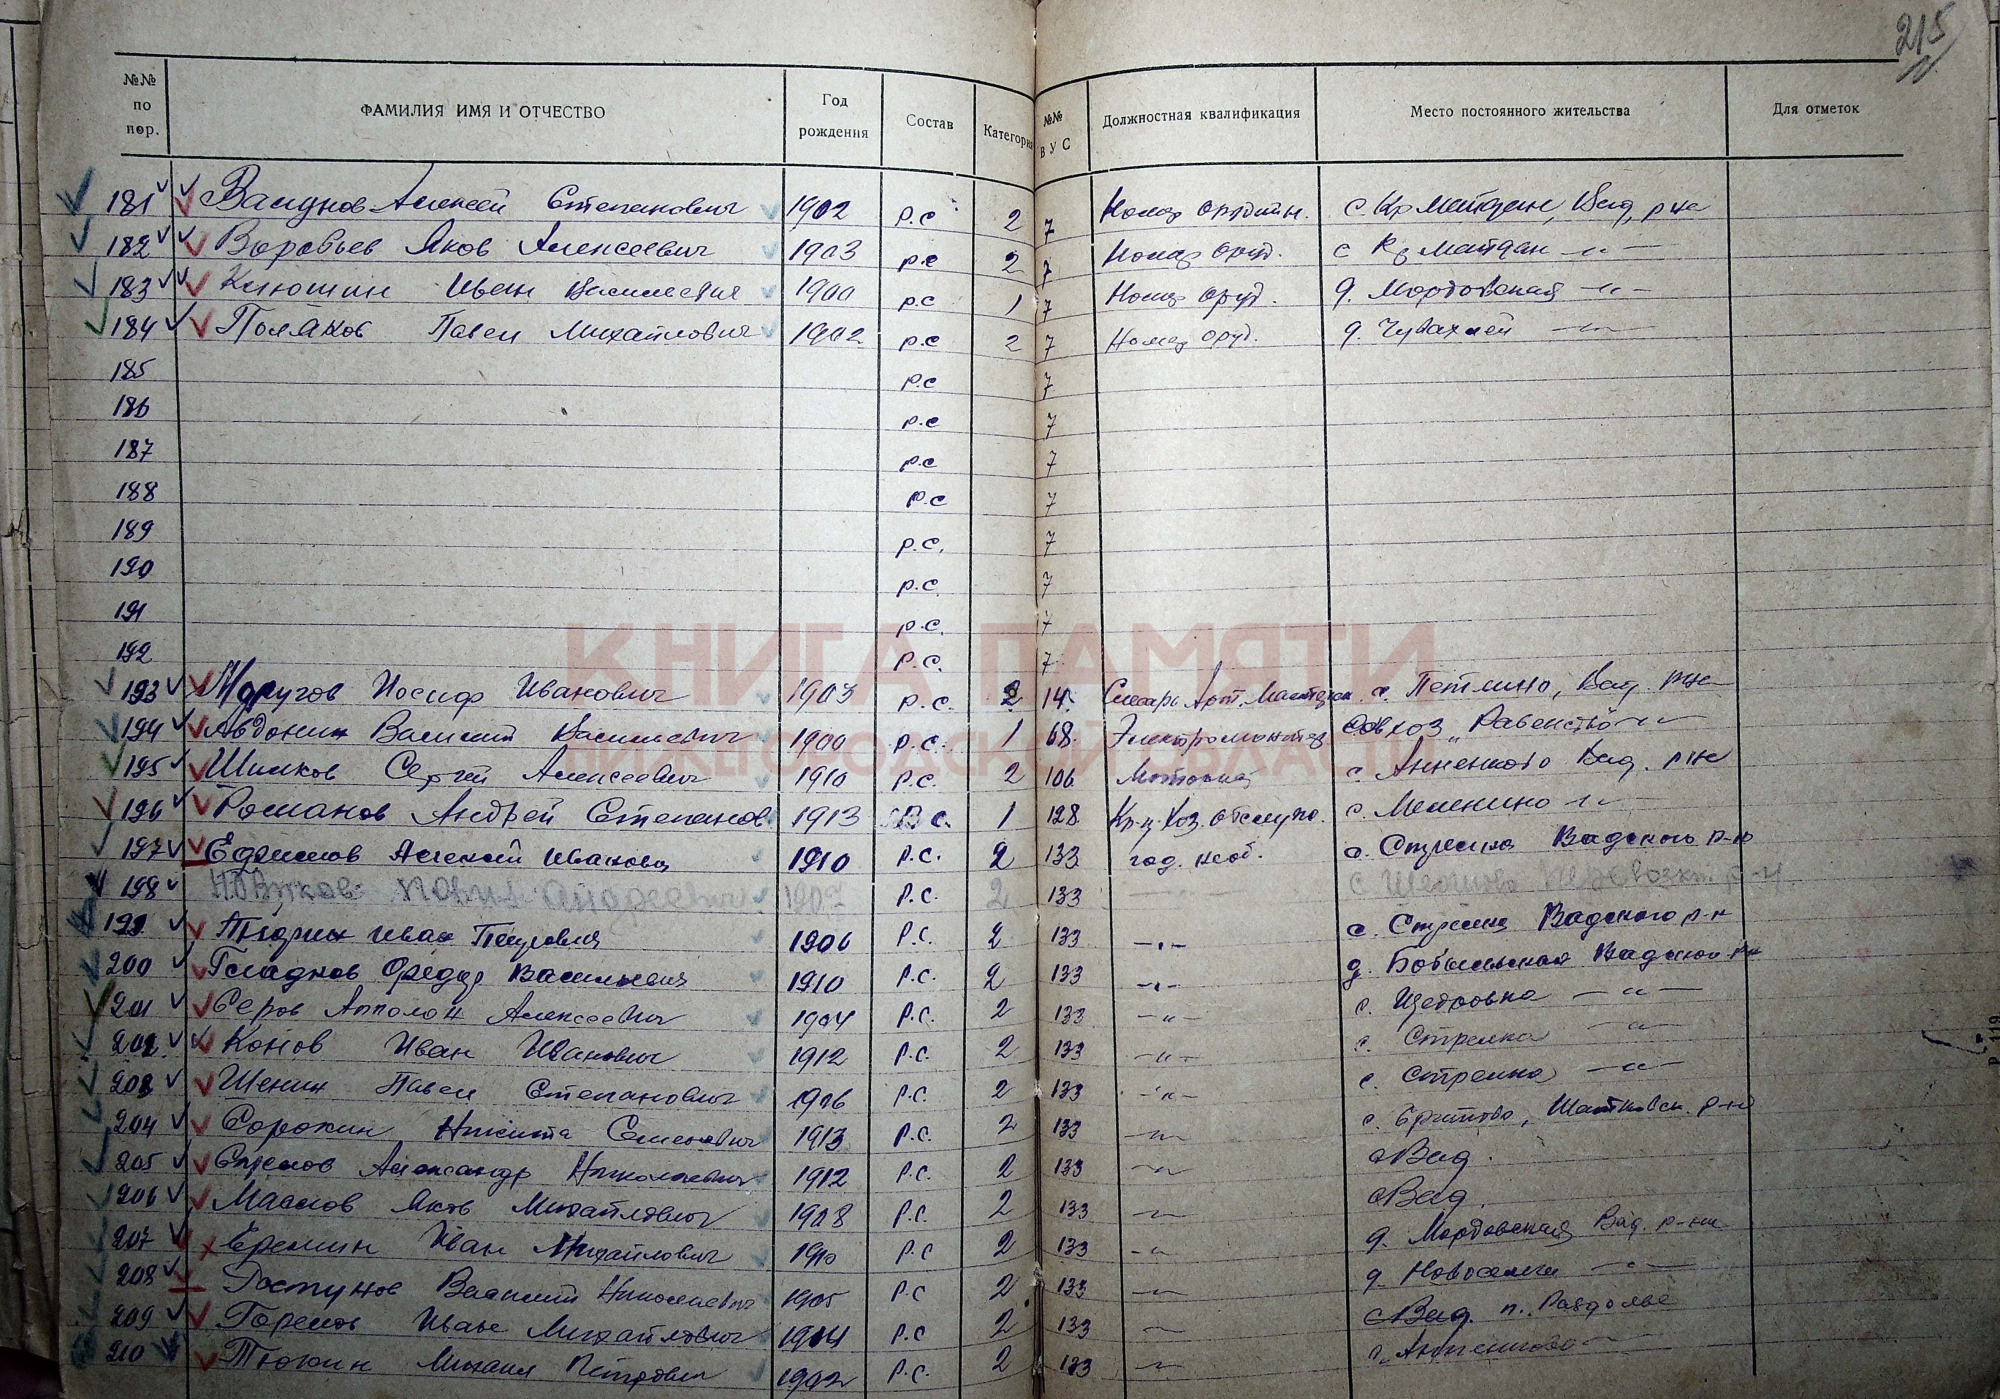 215
№№ по пор. ФАМИЛИЯ ИМЯ И ОТЧЕСТВО Год рождения Состав Категория №№ ВУС Должностная квалификация Место постоянного жительства Для отметок
181 Алексей Степанович 1902 р.с 2 7 Номер с. Кр Майдан, Вад, р-на
182 Воробьев Яков Алексеевич 1903 р.с 2 7 Номер оруд. с Кр Майдан —"—
183 Клюшин Иван Васильевич 1900 р.с 1 7 Номер оруд. д. Мордовская —"—
184 Поляков Павел Михайлович 1902 р.с 2 7 Номер оруд. д. Чувахлей —"—
185 р.с 7
186 р.с 7
187 р.с 7
188 р.с 7
189 р.с. 7
190 р.с 7
191 р.с. 7
192 р.с. 7
КНИГА ПАМЯТИ
193 Иосиф Иванович 1903 р.с. 2 14 Слесарь Арт. с. Петлино, Вад. р-на
194 Авдонин Василий Васильевич 1900 р.с. 1 68 Электромонтер Совхоз „Равенство —"—
НИЖЕГОРОДСКОЙ ОБЛАСТИ
195 Шилков Сергей Алексеевич 1910 р.с. 2 106 с. Анненково Вад. р-на
196 Романов Андрей Степанов. 1913 с. 1 128 Кр-ц. хоз. обслуж. с. Меленино —"—
197 Ефремов Алексей Иванович 1910 р.с. 2 133 год. необ. с. Стрелка Вадского р-на
198 Андреевич 1907 р.с. 2 133 с р-н
199 Иван Петрович 1906 р.с. 2 133 —"— с. Стрелка Вадского р-н
200 Гладков Федор Васильевич 1910 р.с. 2 133 —"— д. Бобыльская Вадского р-на
201 Серов Апполон Алексеевич 1904 р.с. 2 133 —"— с. Щедровка —"—
202 Конов Иван Иванович 1912 р.с. 2 133 —"— с. Стрелка —"—
203 Шенин Павел Степанович 1906 р.с. 2 133 —"— с. Стрелка —"—
204 Сорокин Никита Семенович 1913 р.с. 2 133 —"— с. Шатковск. р-на
205 Александр Николаевич 1912 р.с. 2 133 —"— с Вад.
206 Маслов Яков Михайлович 1908 р.с. 2 133 —"— с Вад.
207 Еремин Иван Михайлович 1910 р.с 2 133 —"— д. Мордовская Вад. р-на
208 Василий Николаевич 1905 р.с 2 133 —"— д. Новоселки —"—
209 Горелов Иван Михайлович 1904 р.с 2 133 —"— с Вад. п. Раздолье
210 Тюкин Михаил Петрович 1902 р.с. 2 133 —"— с. Анненково —"—